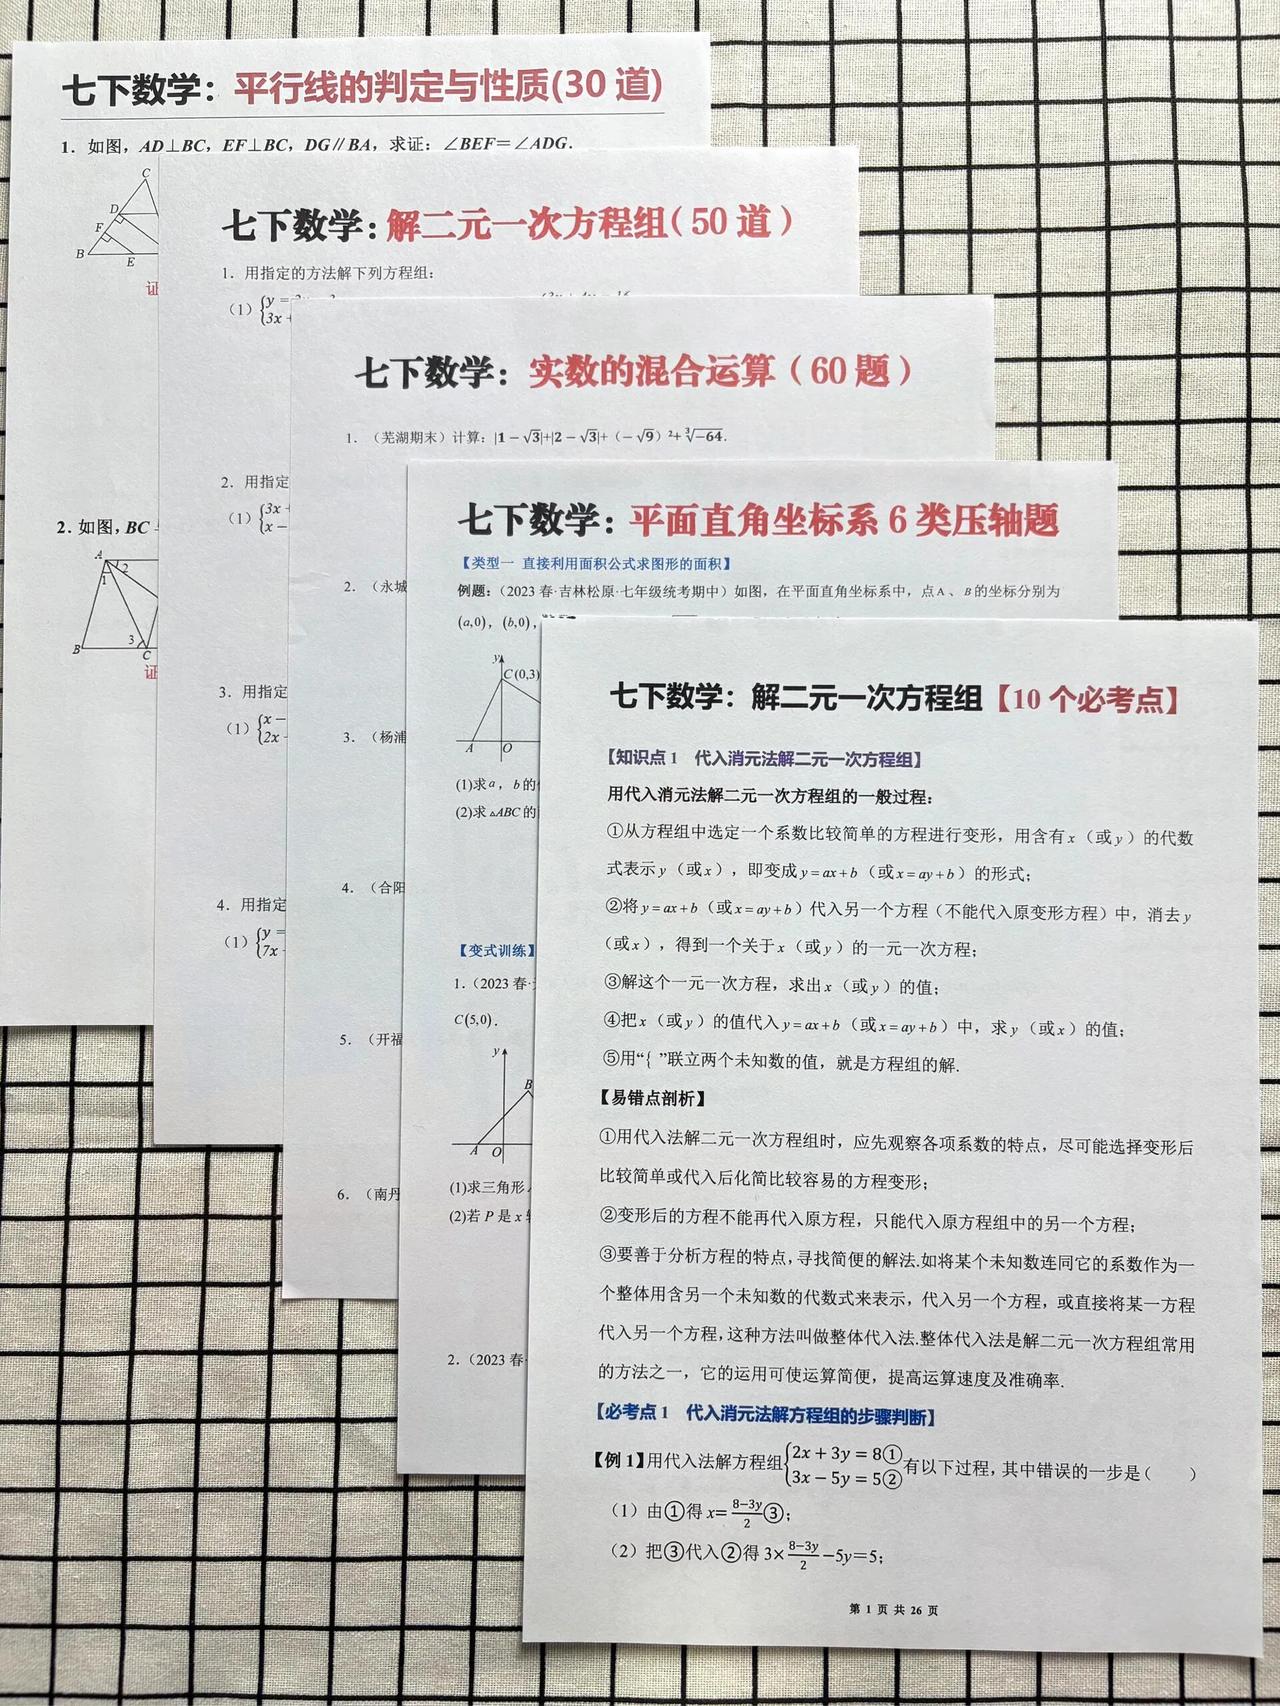 七下数学：平行线的判定与性质(30 道)
1．如图，AD⊥BC，EF⊥BC，DG∥BA，求证：∠BEF＝∠ADG．
C
D
F
B
E
证
2．如图，BC
A
1
2
3
B
C
证
七下数学：解二元一次方程组（50 道）
1．用指定的方法解下列方程组：
（1）{y =
3x +
2．用指定
（1）{3x +
x −
3．用指定
（1）{x −
2x
4．用指定
（1）{y =
7x
七下数学：实数的混合运算（60 题）
1．（芜湖期末）计算：|1 − √3|+|2 − √3|+（−√9）²+∛−64.
2．（永城
3．（杨浦
4．（合阳
5．（开福
6．（南丹
七下数学：平面直角坐标系 6 类压轴题
【类型一 直接利用面积公式求图形的面积】
例题：（2023 春·吉林松原·七年级统考期中）如图，在平面直角坐标系中，点A、B的坐标分别为
(a,0)，(b,0)，
y
C(0,3)
A
O
(1)求a，b的
(2)求△ABC的
【变式训练】
1.（2023 春·
C(5,0)．
y
B
A
O
(1)求三角形
(2)若 P 是 x
2.（2023 春·
七下数学：解二元一次方程组【10 个必考点】
【知识点 1 代入消元法解二元一次方程组】
用代入消元法解二元一次方程组的一般过程：
①从方程组中选定一个系数比较简单的方程进行变形，用含有x（或y）的代数
式表示y（或x），即变成y=ax+b（或x=ay+b）的形式；
②将y=ax+b（或x=ay+b）代入另一个方程（不能代入原变形方程）中，消去y
（或x），得到一个关于x（或y）的一元一次方程；
③解这个一元一次方程，求出x（或y）的值；
④把x（或y）的值代入y=ax+b（或x=ay+b）中，求y（或x）的值；
⑤用“{ ”联立两个未知数的值，就是方程组的解.
【易错点剖析】
①用代入法解二元一次方程组时，应先观察各项系数的特点，尽可能选择变形后
比较简单或代入后化简比较容易的方程变形；
②变形后的方程不能再代入原方程，只能代入原方程组中的另一个方程；
③要善于分析方程的特点，寻找简便的解法.如将某个未知数连同它的系数作为一
个整体用含另一个未知数的代数式来表示，代入另一个方程，或直接将某一方程
代入另一个方程，这种方法叫做整体代入法.整体代入法是解二元一次方程组常用
的方法之一，它的运用可使运算简便，提高运算速度及准确率.
【必考点 1 代入消元法解方程组的步骤判断】
【例 1】用代入法解方程组{2x + 3y = 8① 3x − 5y = 5②有以下过程，其中错误的一步是（ ）
（1）由①得 x=(8−3y)/2③；
（2）把③代入②得 3×(8−3y)/2−5y＝5；
第 1 页 共 26 页